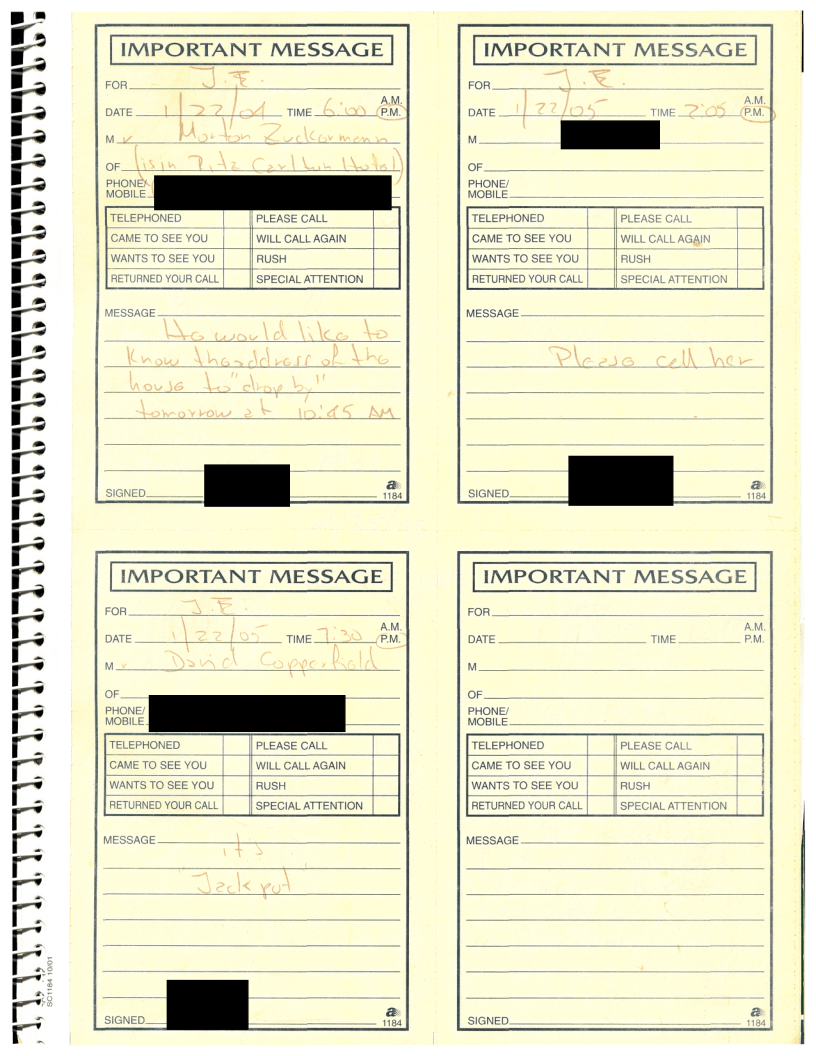 IMPORTANT MESSAGE
FOR J.E.
A.M.
DATE 1/22/04 TIME 6:00 P.M.
M r Morton Zuckormann
OF (is in Ritz Carlton Hotel)
PHONE/
MOBILE
TELEPHONED PLEASE CALL
CAME TO SEE YOU WILL CALL AGAIN
WANTS TO SEE YOU RUSH
RETURNED YOUR CALL SPECIAL ATTENTION
MESSAGE
He would like to
know the address of the
house to "drop by"
tomorrow at 10:45 AM
SIGNED
a
1184
IMPORTANT MESSAGE
FOR J.E.
A.M.
DATE 1/22/05 TIME 7:05 P.M.
M
OF
PHONE/
MOBILE
TELEPHONED PLEASE CALL
CAME TO SEE YOU WILL CALL AGAIN
WANTS TO SEE YOU RUSH
RETURNED YOUR CALL SPECIAL ATTENTION
MESSAGE
Please call her
SIGNED
a
1184
IMPORTANT MESSAGE
FOR J.E.
A.M.
DATE 1/22/05 TIME 7:30 P.M.
M r David Copperfield
OF
PHONE/
MOBILE
TELEPHONED PLEASE CALL
CAME TO SEE YOU WILL CALL AGAIN
WANTS TO SEE YOU RUSH
RETURNED YOUR CALL SPECIAL ATTENTION
MESSAGE
it's
"Jackpot"
SIGNED
a
1184
IMPORTANT MESSAGE
FOR
A.M.
DATE TIME P.M.
M
OF
PHONE/
MOBILE
TELEPHONED PLEASE CALL
CAME TO SEE YOU WILL CALL AGAIN
WANTS TO SEE YOU RUSH
RETURNED YOUR CALL SPECIAL ATTENTION
MESSAGE
SIGNED
a
1184
SC1184 10/01